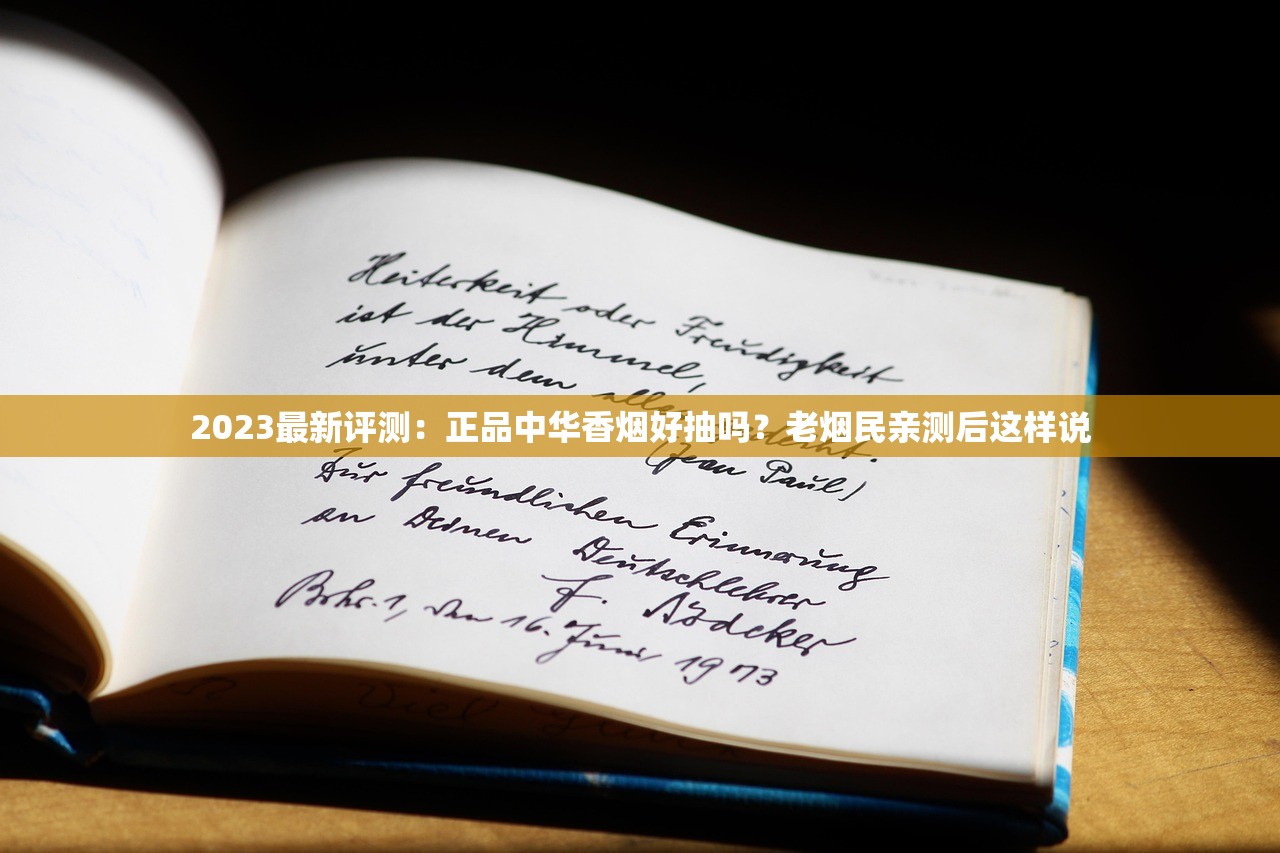 Heiterkeit oder Freudigkeit
ist der Himmel,
unter dem alles
2023最新评测：正品中华香烟好抽吗？老烟民亲测后这样说
(Jean Paul)
Zur freundlichen Erinnerung
an Deinen Deutschlehrer
F.
den 16. Juni 1973